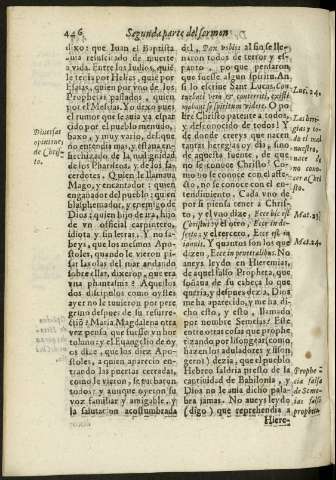 446 Segunda parte del sermon
dixo: que Iuan el Baptista
auia resuscitado de muerte
a vida. Entre los Iudios, quiē
le tenia por Helias, quiē por
Esaias, quien por vno de los
Prophetas passados, quien
por el Messias. Y no dexaua
de ser mucha el aura ya espar
cido por el pueblo menudo,
baxo, y muy vario, desque
no entendia mas, y estaua en
hechizado de la malignidad
de los Phariseos, y de los sa-
cerdotes. Quien le llamaua
Mago, y encantador: quien
engañador del pueblo: quien
blasphemador, y enemigo de
Dios: quien hijo de ira, hijo
de vn official carpintero,
idiota y sin letras. Y no sa-
beys, que los mesmos Apo-
stoles, quando le vieron pi-
sar las olas del mar andando
sobre ellas, dixeron, que era
vna phantasma? Aquellos
dos discipulos como oystes
ayer no le tuuieron por pere
grino despues de su resurre-
ctió? Maria Magdalena otra
vez pensa que fuesse vn hor
tolano: y el Euangelio de oy
os dize, que los diez Apo-
stoles, a quien aparecio en-
trando las puertas cerradas,
como le vieron, se turbaron
todos: y aunque oyeron su
voz familiar y amigable, y
la salutacion acostumbrada
Diuersas
opiniones
de Chris-
to.
del, Pax vobis: al fin se lle-
naron todos de terror y es-
panto, porque pensaron,
que fuesse algun spiritu. An
si lo escriue Sant Lucas. Con
turbati vero & conterriti, existi
mabant se spiritum videre. O po
bre Christo patente a todos,
y desconocido de todos! Y
de donde creeys que nacen
tantas heregias oy dia, sino
de aquesta fuente, de que
no se conoce Christo? Co-
mo no se conoce en el en-
tendimiento. Cada vno de
por si piensa tener a Chris-
to, y el vno dize, Ecce hic est
Christus: y el otro, Ecce in de-
serto, y el tercero, Ecce est in
domib. Y quantos son los que
dizen Ecce in penetralibus. No
aueys leydo en Hieremias,
de aquel falso Propheta, que
soñaua de su cabeça lo que
queria, y despues dezia, Dios
me ha aparecido, y me ha di
cho esto, y esto, llamado
por nombre Semeias? Este
entre otras cosas que prophe
tizando por lisongear (como
hazen los aduladores y lison
geros) dezia, que el pueblo
Hebreo saldria presto de la
captiuidad de Babilonia, y
Dios no le auia dicho pala-
bra jamas. No aueys leydo
(digo) que reprehendia a
Hiere-
Luc. 24.
Las here
gias y to-
do mal
nuestro,
nace de
no cono-
cer a Chri
sto.
Mat. 23.
Mat. 24.
Prophe-
cia falsa
de Seme-
ias falso
propheta.